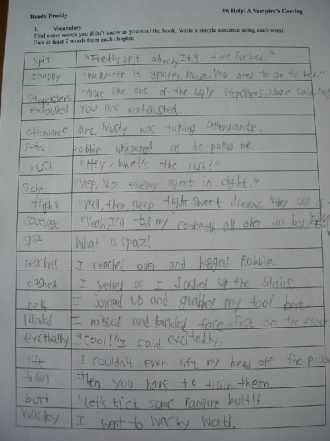 Ready Freddy #6 Help! A Vampire's Coming
1. Vocabulary
Find some words you didn't know as you read the book. Write a simple sentence using each word.
Pick at least 2 words from each chapter.
spit "Freddy spit already. It's time for bed."
snappy snappy, You need to go to bed."
stepsisters "More like one of the ugly stepsisters,
exhausted You are exhausted.
attendance Mrs. was taking attendance.
poked Robbie whispered as he poked me.
rush "Hey, what's the rush?"
sight "Yep. No enemy agent in sight."
tight "Well, then, sleep tight. Sweet dreams.
all over
spaz What a spaz!
reached I reached over and hugged Robbie.
dashed I yelled as I dashed up the stairs.
belt I jumped up and grabbed my tool belt.
landed I missed and landed face-first on the floor
excitedly "Cool!" I said excitedly.
lift I couldn't even lift my head off the pillow
train Then you have to train them.
butt "Let's kick some vampire butt!"
wacky I went to Wacky World.